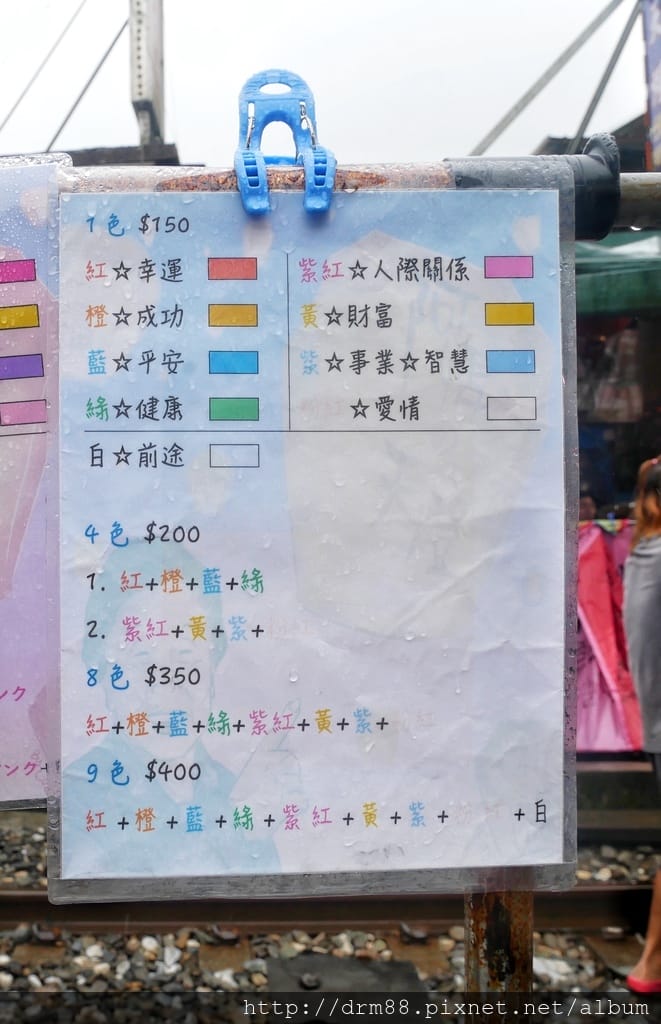 1色 $150
紅☆幸運 紫紅☆人際關係
橙☆成功 黃☆財富
藍☆平安 紫☆事業☆智慧
綠☆健康 粉紅☆愛情
白☆前途
4色 $200
1. 紅+橙+藍+綠
2. 紫紅+黃+紫+粉紅
8色 $350
紅+橙+藍+綠+紫紅+黃+紫+粉紅
9色 $400
紅+橙+藍+綠+紫紅+黃+紫+粉紅+白
ンク
ンク+
http://drm88.pixnet.net/album